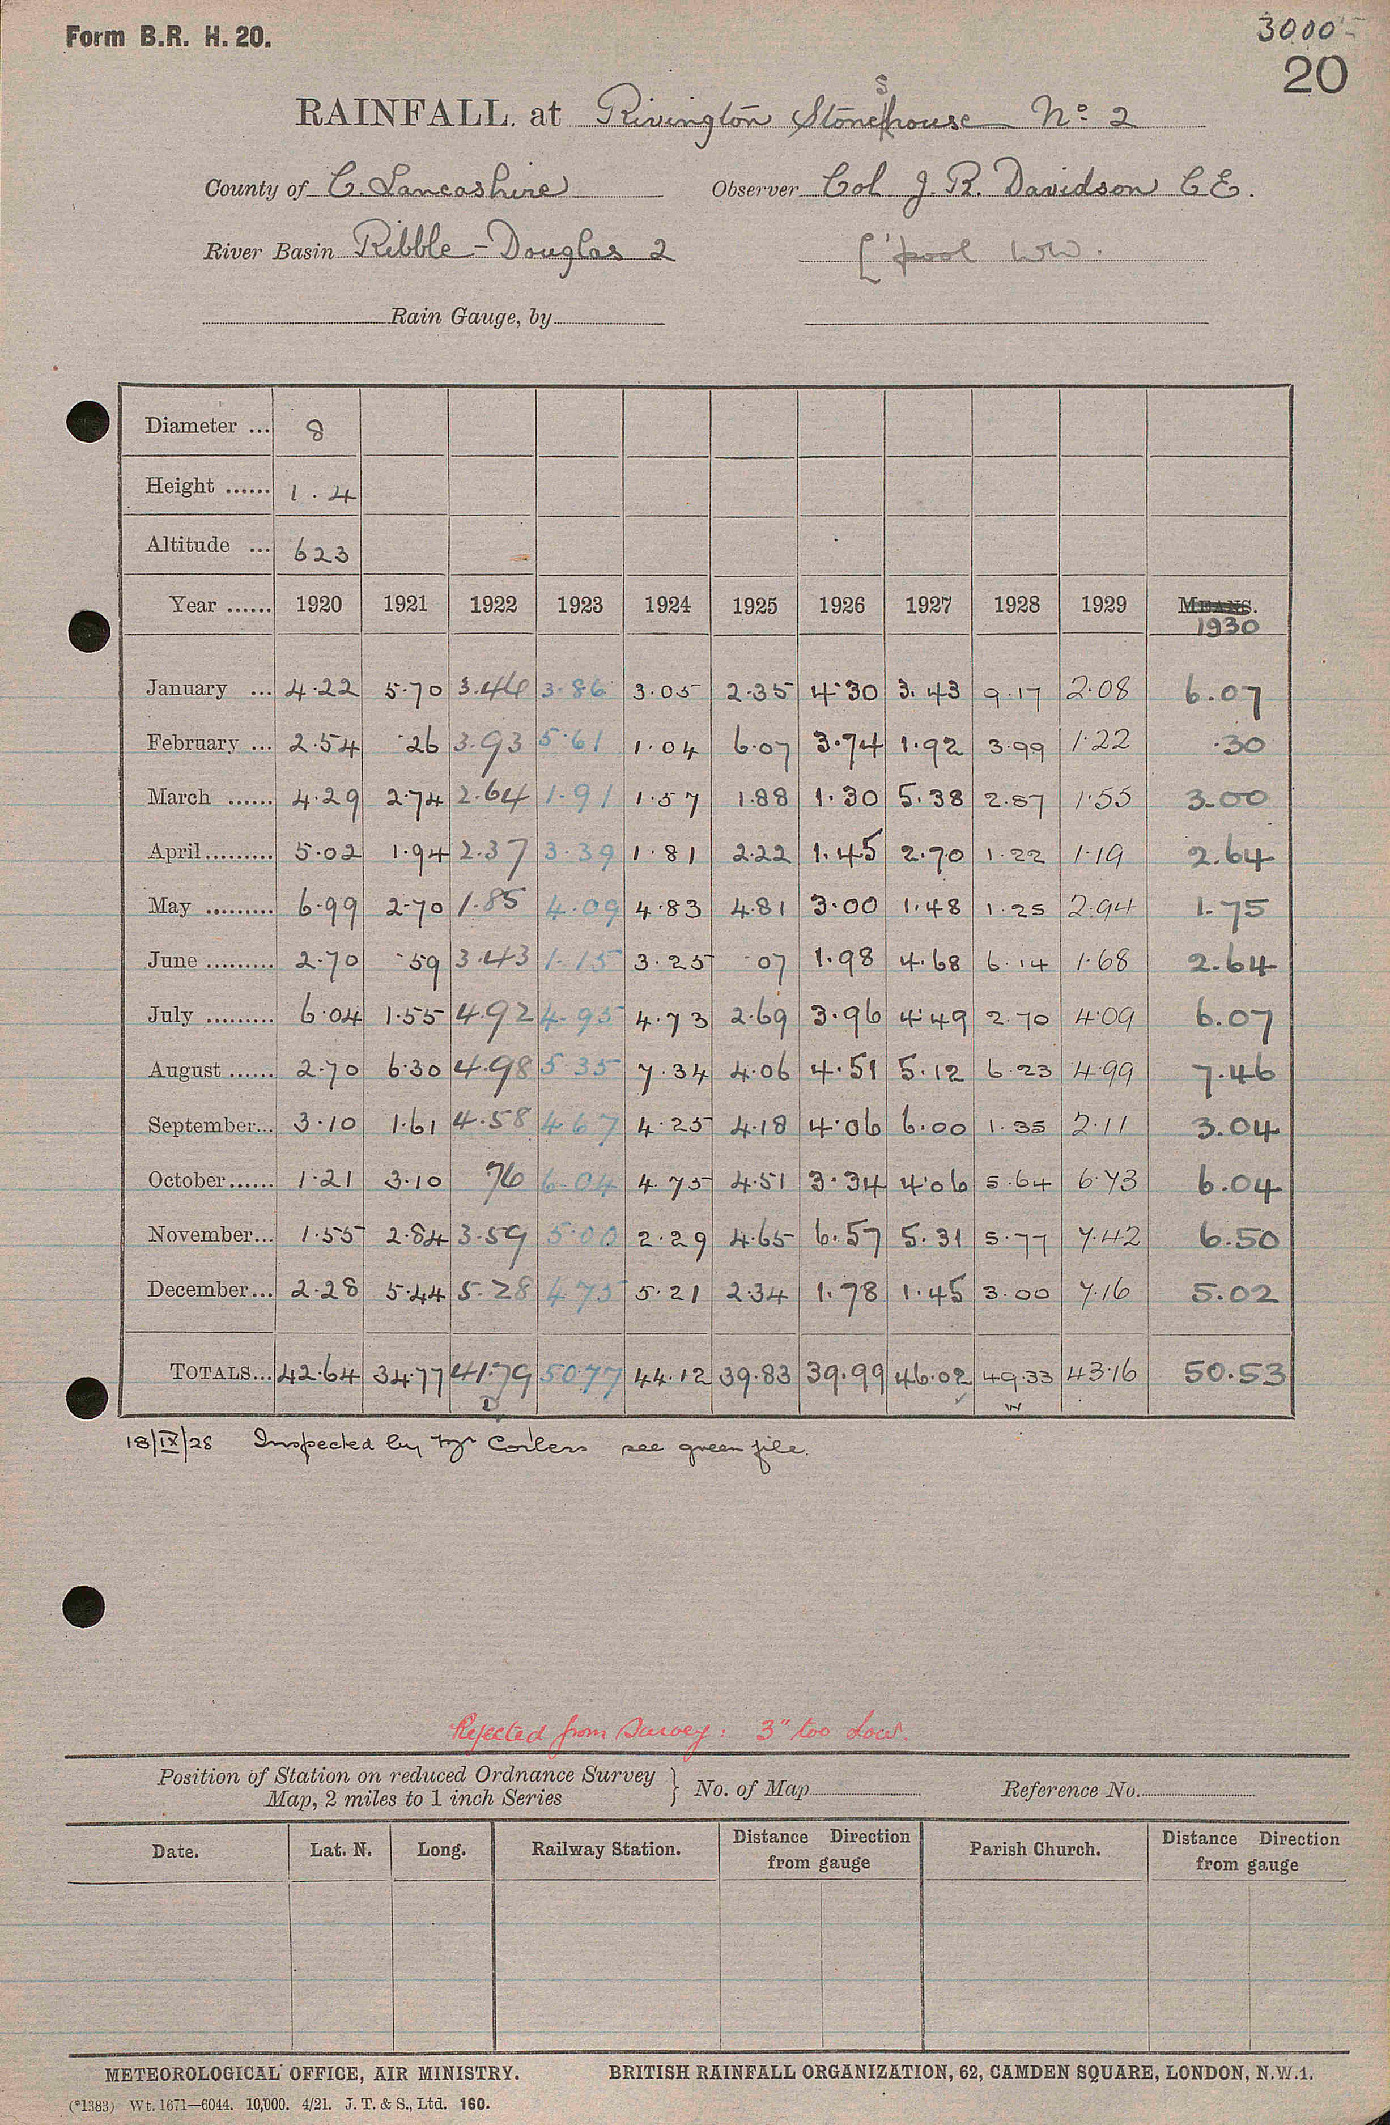 Form B.R. H. 20.
3000-
20
RAINFALL at Rivington Stoneshouse No 2
County of C. Lancashire Observer Col J. R. Davidson C E.
River Basin Ribble - Douglas 2 L'pool WW.
Rain Gauge, by
Diameter ... 8
Height ...... 1.4
Altitude ... 623
Year ...... 1920 1921 1922 1923 1924 1925 1926 1927 1928 1929 MEANS.
1930
January ... 4.22 5.70 3.46 3.86 3.05 2.35 4.30 3.43 9.17 2.08 6.07
February ... 2.54 .26 3.93 5.61 1.04 6.07 3.74 1.92 3.99 1.22 .30
March ...... 4.29 2.74 2.64 1.91 1.57 1.88 1.30 5.38 2.87 1.55 3.00
April ......... 5.02 1.94 2.37 3.39 1.81 2.22 1.45 2.70 1.22 1.19 2.64
May ......... 6.99 2.70 1.85 4.09 4.83 4.81 3.00 1.48 1.25 2.94 1.75
June ......... 2.70 .59 3.43 1.15 3.25 .07 1.98 4.68 6.14 1.68 2.64
July ......... 6.04 1.55 4.92 4.95 4.73 2.69 3.96 4.49 2.70 4.09 6.07
August ...... 2.70 6.30 4.98 5.35 7.34 4.06 4.51 5.12 6.23 4.99 7.46
September... 3.10 1.61 4.58 4.67 4.25 4.18 4.06 6.00 1.35 2.11 3.04
October...... 1.21 3.10 76 6.04 4.75 4.51 3.34 4.06 5.64 6.73 6.04
November... 1.55 2.84 3.59 5.00 2.29 4.65 6.57 5.31 5.77 7.42 6.50
December... 2.28 5.44 5.28 4.75 5.21 2.34 1.78 1.45 3.00 7.16 5.02
TOTALS... 42.64 34.77 41.79 50.77 44.12 39.83 39.99 46.02 49.33 43.16 50.53
18/IX/28 Inspected by Mr see green file.
Rejected from Survey: 3" too Low.
Position of Station on reduced Ordnance Survey
Map, 2 miles to 1 inch Series } No. of Map Reference No.
Date. Lat. N. Long. Railway Station. Distance Direction from gauge Parish Church. Distance Direction from gauge
METEOROLOGICAL OFFICE, AIR MINISTRY. BRITISH RAINFALL ORGANIZATION, 62, CAMDEN SQUARE, LONDON, N.W.1.
(*1383) Wt. 1671—6044. 10,000. 4/21. J. T. & S., Ltd. 160.